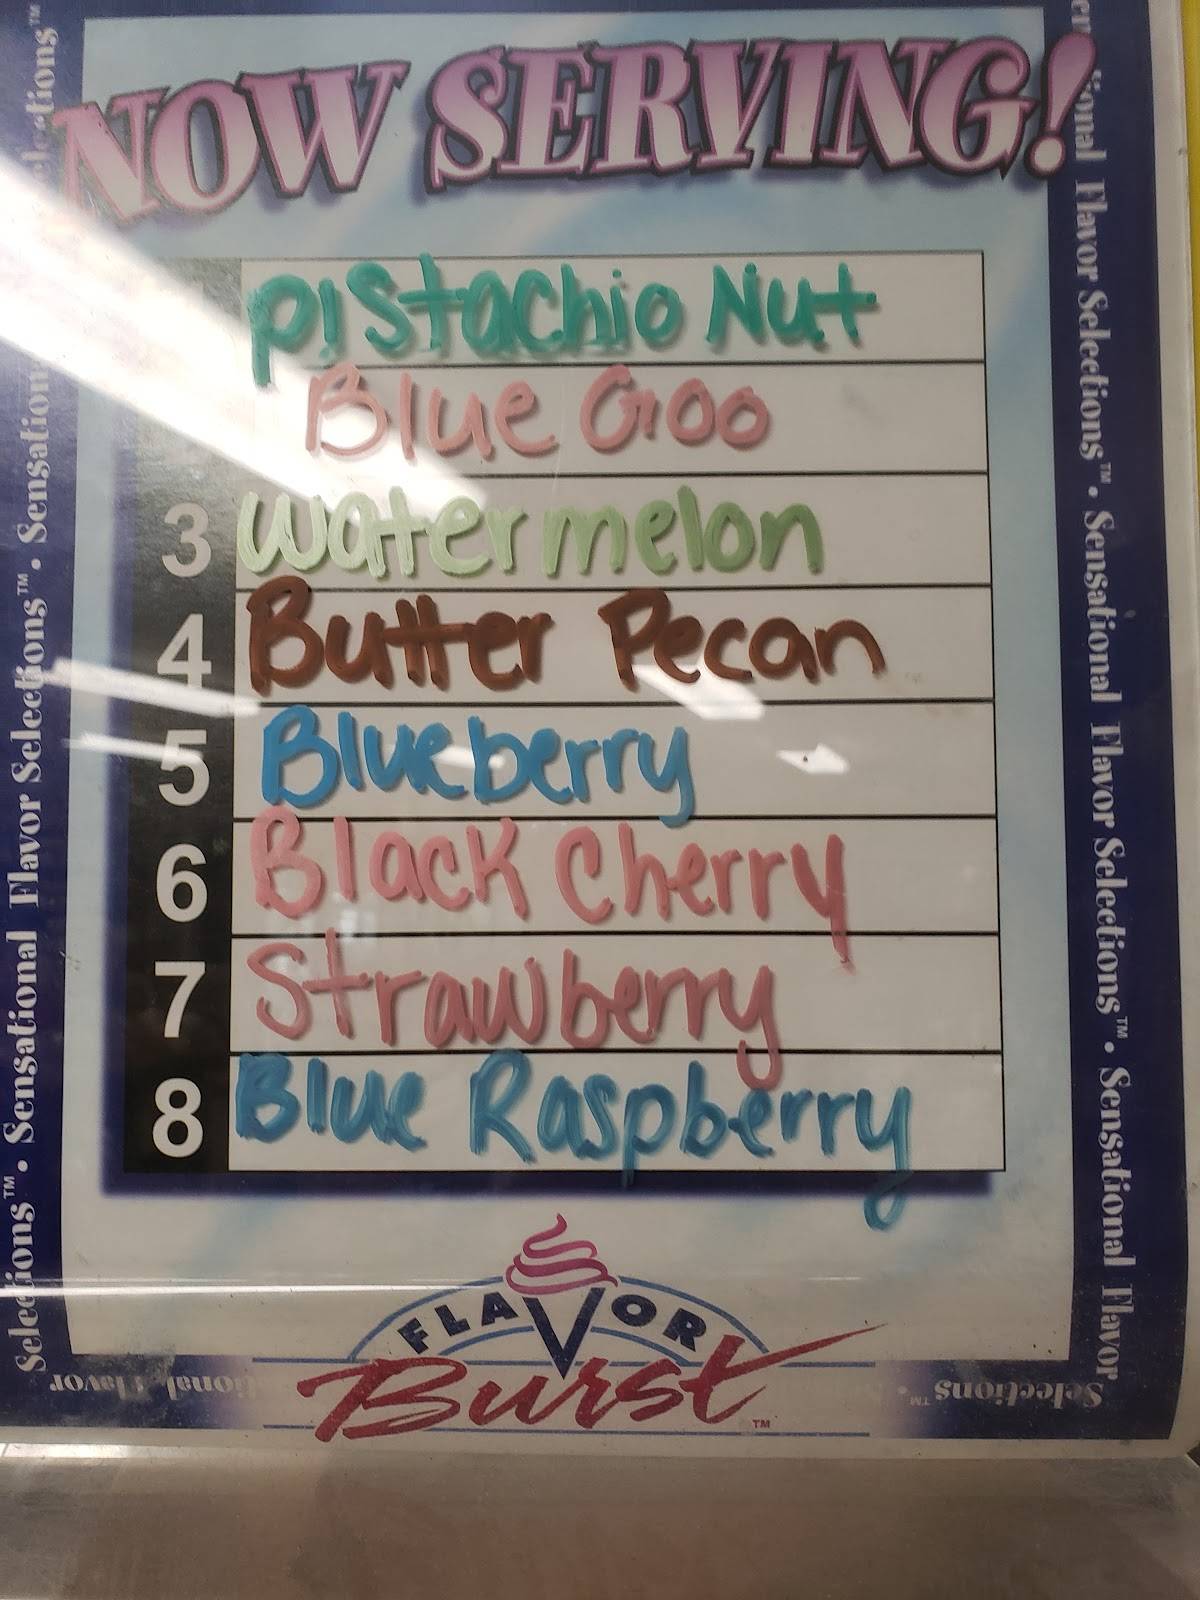 NOW SERVING!
pistachio Nut
Blue Goo
3 watermelon
4 Butter Pecan
5 Blueberry
6 Black Cherry
7 Strawberry
8 Blue Raspberry
FLAVOR
Burst™
Selections™ • Sensational Flavor Selections™ • Sensational Flavor Selections™
Flavor Selections™ • Sensational Flavor Selections™ • Sensational Flavor
Selections™
Flavor